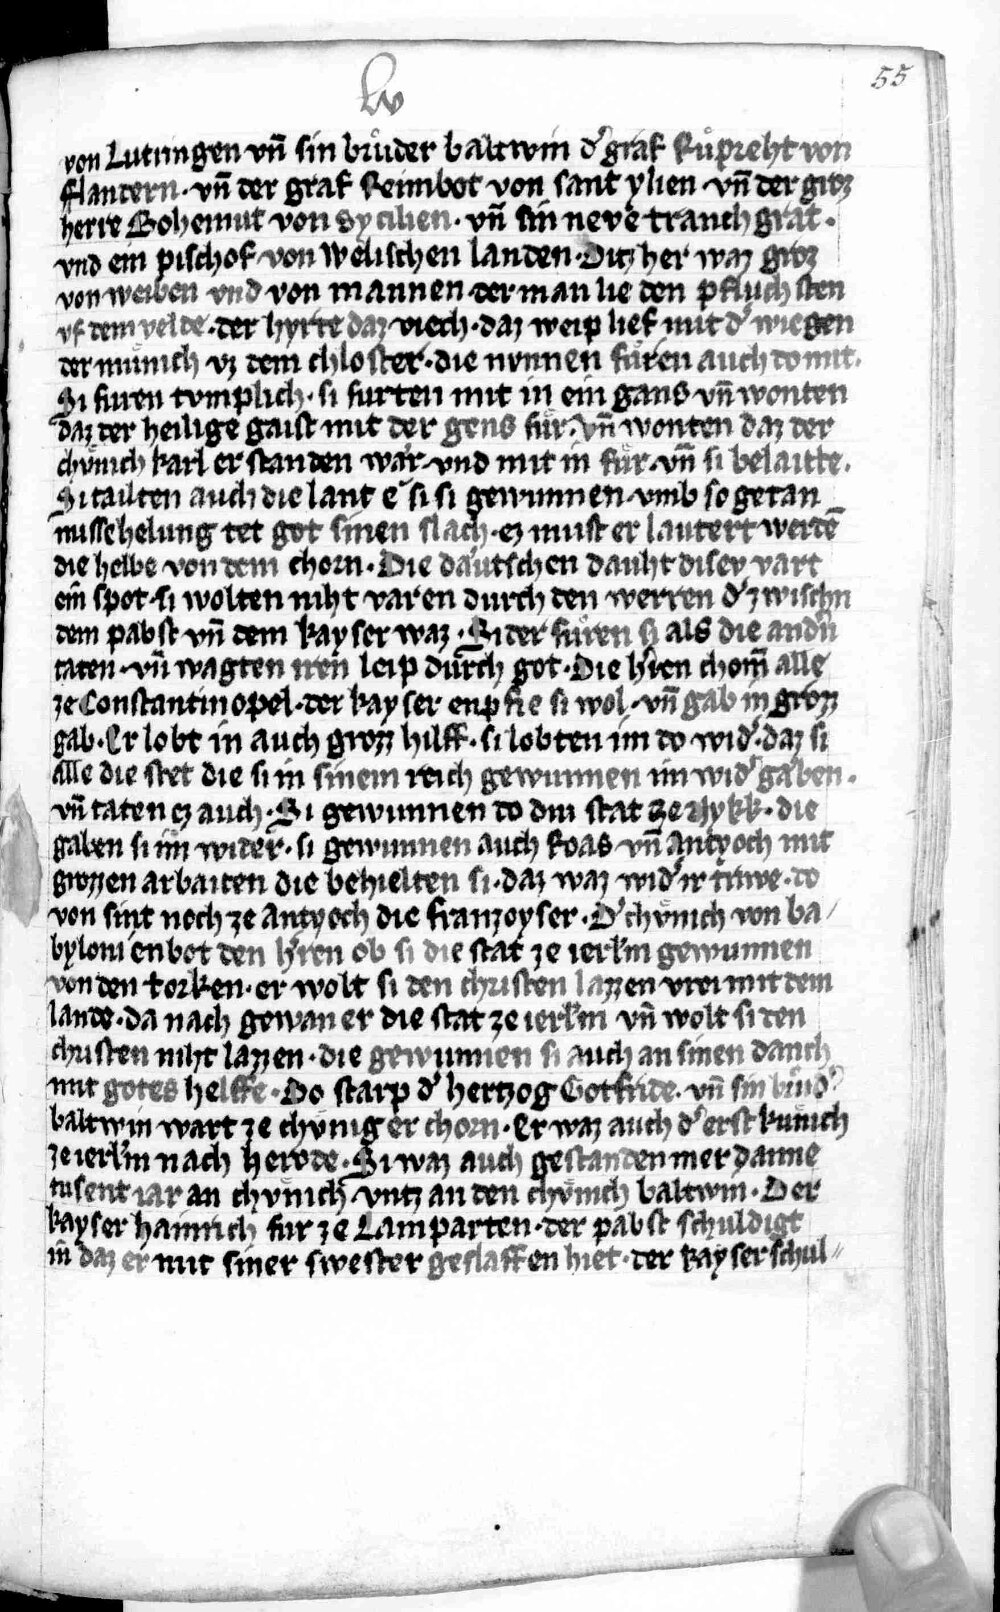 lv
55
von Lutringen vn̄ sin brůder baltwin dˀ graf Růpreht von
fflandern · vn̄ der graf Reimbot von sant ylien · vn̄ der groz
herre Bohemut von Sycilien · vn̄ sin neve tranch grat ·
vnd ein pischof von welischen landen · Ditz her waz groz
von weiben vnd von mannen · der man lie den pfluch sten
vf dem velde · der hyrte daz viech · daz weip lief mit dˀ wiegen
der münich vz dem chloster · die nvnnen fůren auch do mit ·
Si furen tvmplich · si furten mit in ein gans vn̄ wonten
daz der heilige gaist mit der gens fůr · vn̄ wonten daz der
chvͤnich karl erstanden wär · vnd mit in fůr · vn̄ si belaitte ·
Si tailten auch die lant e si si gewunnen · vmb so getan
missehelung tet got sinen slach · ez must erlautert werdē
die helbe von dem chorn · Die däutschen dauht disev vart
ein spot · si wolten niht varen durch den werren dˀ zwischn
dem pabst vn̄ dem kayser waz · Sider fůren si als die andˀn
taten · vn̄ wagten iren leip durch got · Die hˀren chom̄ alle
ze Constantinopel · der kayser enpfie si wol · vn̄ gab in grozz
gab · Er lobt in auch grozz hilff · si lobten im do widˀ · daz si
alle die stet die si in sinem reich gewunnen im widˀ gäben ·
vn̄ taten ez auch · Si gewunnen do die stat ze Nykk · die
gaben si im wider · si gewunnen auch Roas vn̄ Antyoch mit
grozzen arbaiten die behielten si · daz waz widˀ ir triwe · do
von sint noch ze Antyoch die franzoyser · Dˀ chvͤnich von ba/
byloni enbot den hˀren ob si die stat ze ierlˀm gewunnen
von den torken · er wolt si den christen lazzen vrei mit dem
lande · da nach gewan er die stat ze ierlˀm vn̄ wolt si den
christen niht lazzen · die gewunnen si auch an sinen danch
mit gotes helffe · Do starp dˀ hertzog Gotfride · vn̄ sin brůdˀ
baltwin wart ze chvnig erchorn · Er waz auch dˀ erst kunich
ze ierlˀm nach herode · Si waz auch gestanden mer danne
tusent iar an chvͤnich vntz an den chvͤnich baltwin · Der
kayser hainrich fur ze Lamparten · der pabst schuldigt
in daz er mit siner swester geslaffen hiet · der kayser schul//